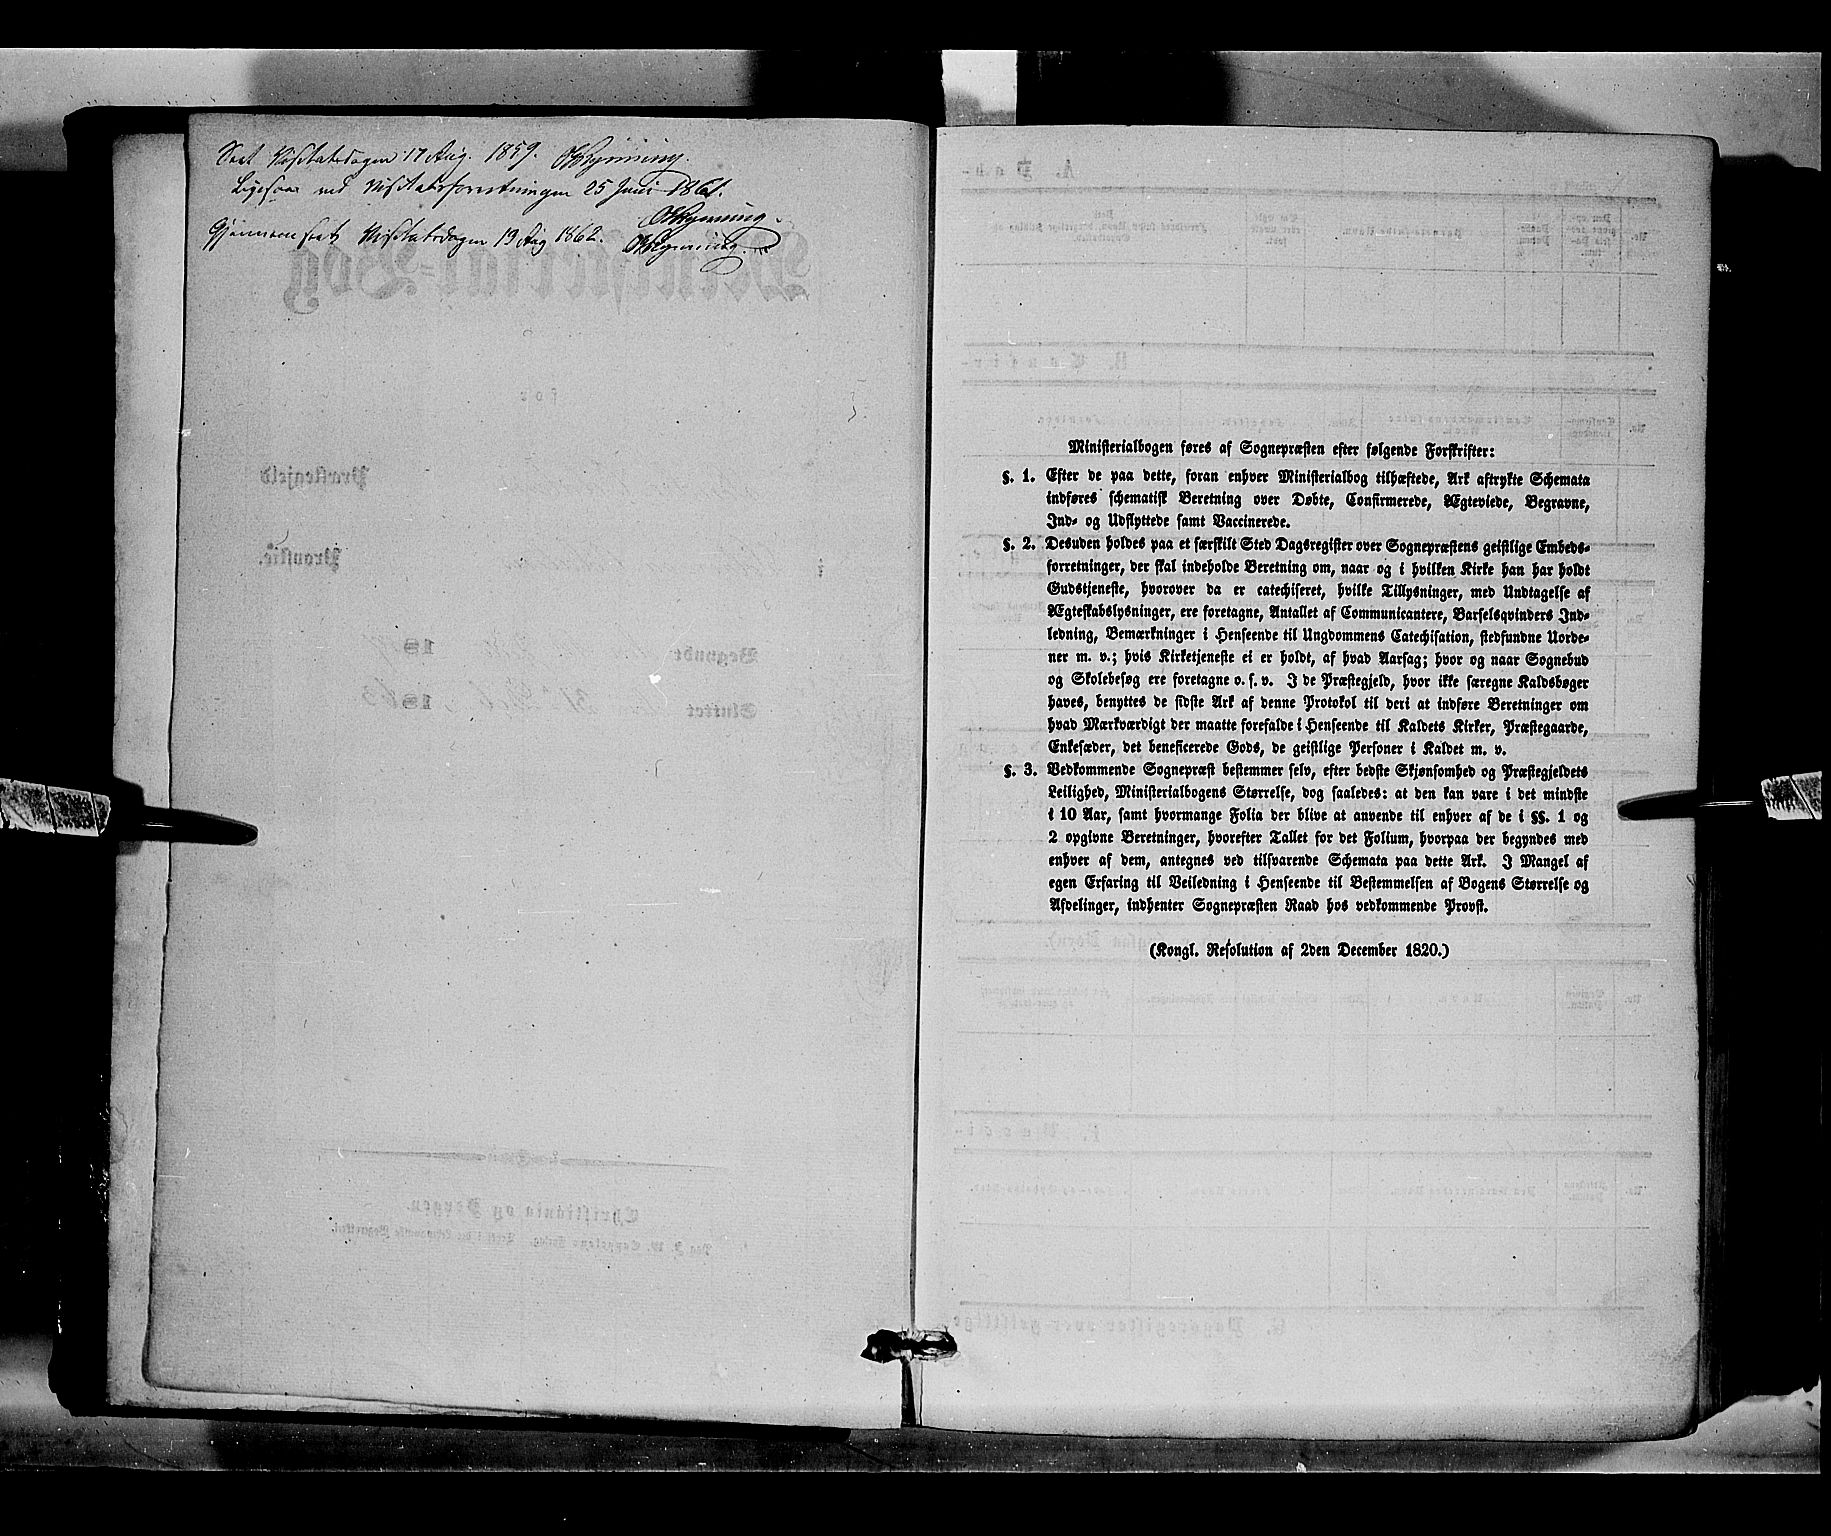 Seet Visitatsdagen 17 Aug. 1859.
Ligesaa ved Visitatsforretningen 25 Juni 1861.
Gjennemseet Visitatsdagen 19 Aug 1862.
Ministerialbogen føres af Sognepræsten efter følgende Forskrifter:
§. 1. Efter de paa dette, foran enhver Ministerialbog tilhæftede, Ark aftrykte Schemata
indføres schematisk Beretning over Døbte, Confirmerede, Ægteviede, Begravne,
Ind- og Udflyttede samt Vaccinerede.
§. 2. Desuden holdes paa et særskilt Sted Dagsregister over Sognepræstens geistlige Embeds-
forretninger, der skal indeholde Beretning om, naar og i hvilken Kirke han har holdt
Gudstjeneste, hvorover da er catechiseret, hvilke Tillysninger, med Undtagelse af
Ægteskabslysninger, ere foretagne, Antallet af Communicantere, Barselsqvinders Ind-
ledning, Bemærkninger i Henseende til Ungdommens Catechisation, stedfundne Uorde-
ner m. v.; hvis Kirketjeneste ei er holdt, af hvad Aarsag; hvor og naar Sognebud
og Skolebesøg ere foretagne o. s. v. I de Præstegjeld, hvor ikke særegne Kaldsbøger
haves, benyttes de sidste Ark af denne Protokol til deri at indføre Beretninger om
hvad Mærkværdigt der maatte forefalde i Henseende til Kaldets Kirker, Præstegaarde,
Enkesæder, det beneficerede Gods, de geistlige Personer i Kaldet m. v.
§. 3. Vedkommende Sognepræst bestemmer selv, efter bedste Skjønsomhed og Præstegjeldets
Leilighed, Ministerialbogens Størrelse, dog saaledes: at den kan vare i det mindste
i 10 Aar, samt hvormange Folia der blive at anvende til enhver af de i §§. 1 og
2 opgivne Beretninger, hvorefter Tallet for det Folium, hvorpaa der begyndes med
enhver af dem, antegnes ved tilsvarende Schemata paa dette Ark. I Mangel af
egen Erfaring til Veiledning i Henseende til Bestemmelsen af Bogens Størrelse og
Afdelinger, indhenter Sognepræsten Raad hos vedkommende Provst.
(Kongl. Resolution af 2den December 1820.)